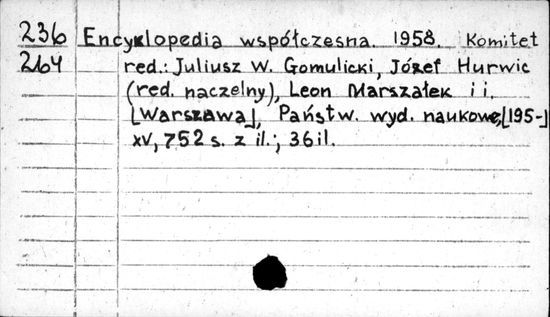 236 Encyklopedia współczesna. 1958. Komitet
264 red.: Juliusz W. Gomulicki, Józef Hurwic
(red. naczelny), Leon Marszałek i i.
[Warszawa], Państw. wyd. naukowe, [195-]
XV, 752 s. z il.; 36 il.